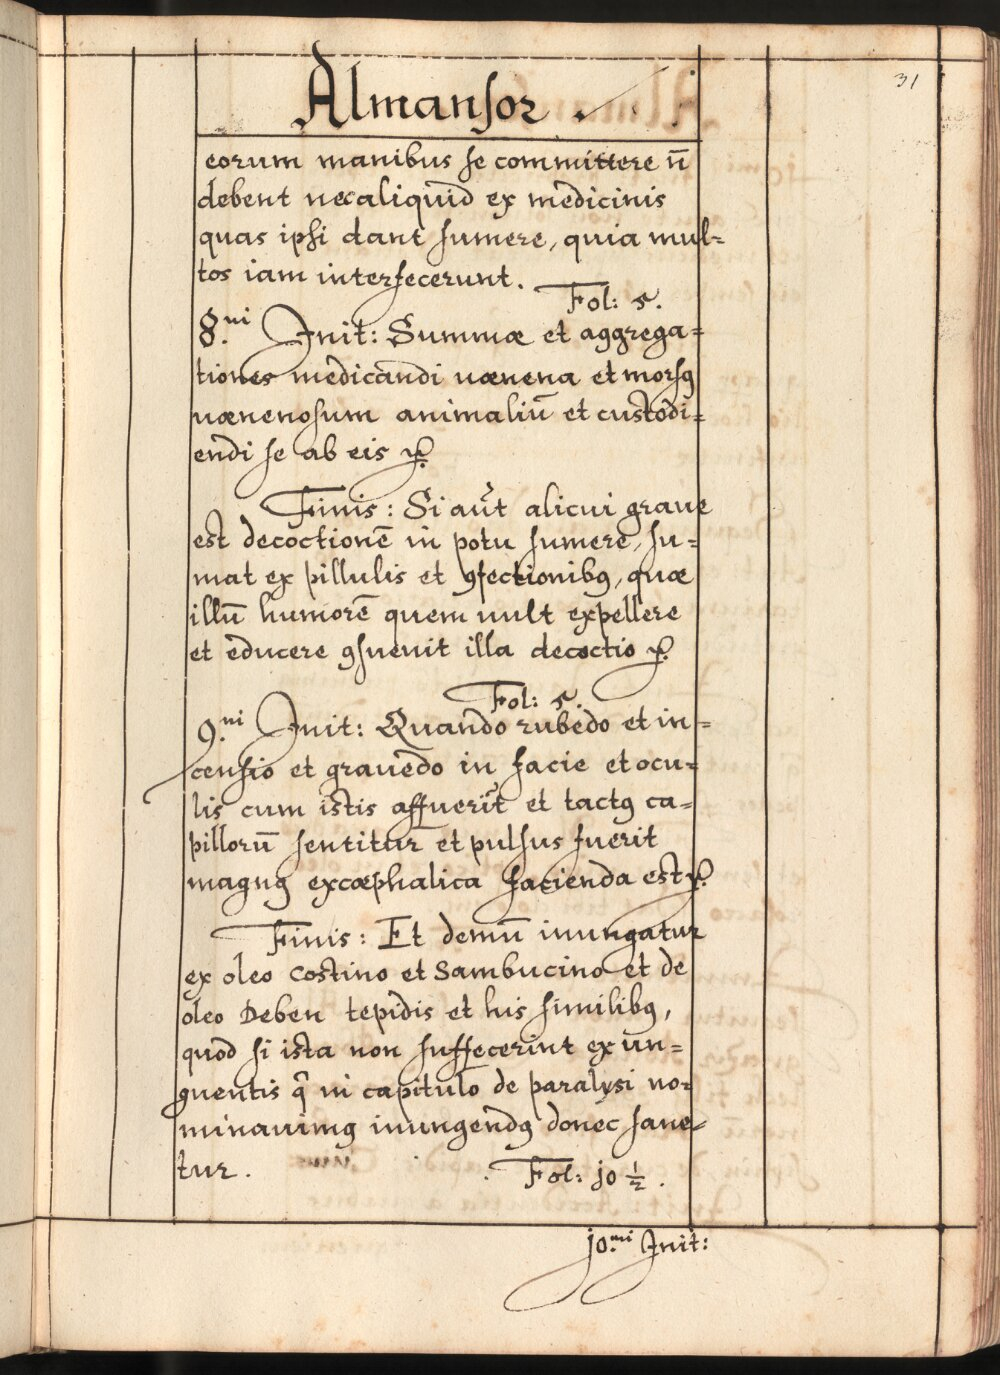 31
Almansor.
eorum manibus se committere n̄
debent nec aliquid ex medicinis
quas ipsi dant sumere, quia mul=
tos iam interfecerunt.
Fol: 5.
8.ni Init: Summæ et aggrega=
tiones medicandi uænena et morsꝯ
uænenosum animaliū et custodi=
endi se ab eis ꝛc.
Finis: Si aūt alicui graue
est decoctionē in potu sumere, su=
mat ex pillulis et ꝯfectionibꝯ, quæ
illū humorē quem uult expellere
et educere ꝯsuenit illa decoctio ꝛc.
Fol: 5.
9.ni Init: Quando rubedo et in=
censio et grauedo in facie et ocu=
lis cum istis affuerīt et tactꝯ ca=
pillorū sentitur et pulsus fuerit
magnꝯ excæphalica facienda est ꝛc.
Finis: Et demū inungatur
ex oleo costino et Sambucino et de
oleo Deben tepidis et his similibꝯ,
quod si ista non suffecerint ex un=
guentis q̄ in capitulo de paralysi no=
minauimꝯ inungendꝯ donec sane=
tur.
Fol: jo ½.
jo.mi Init: